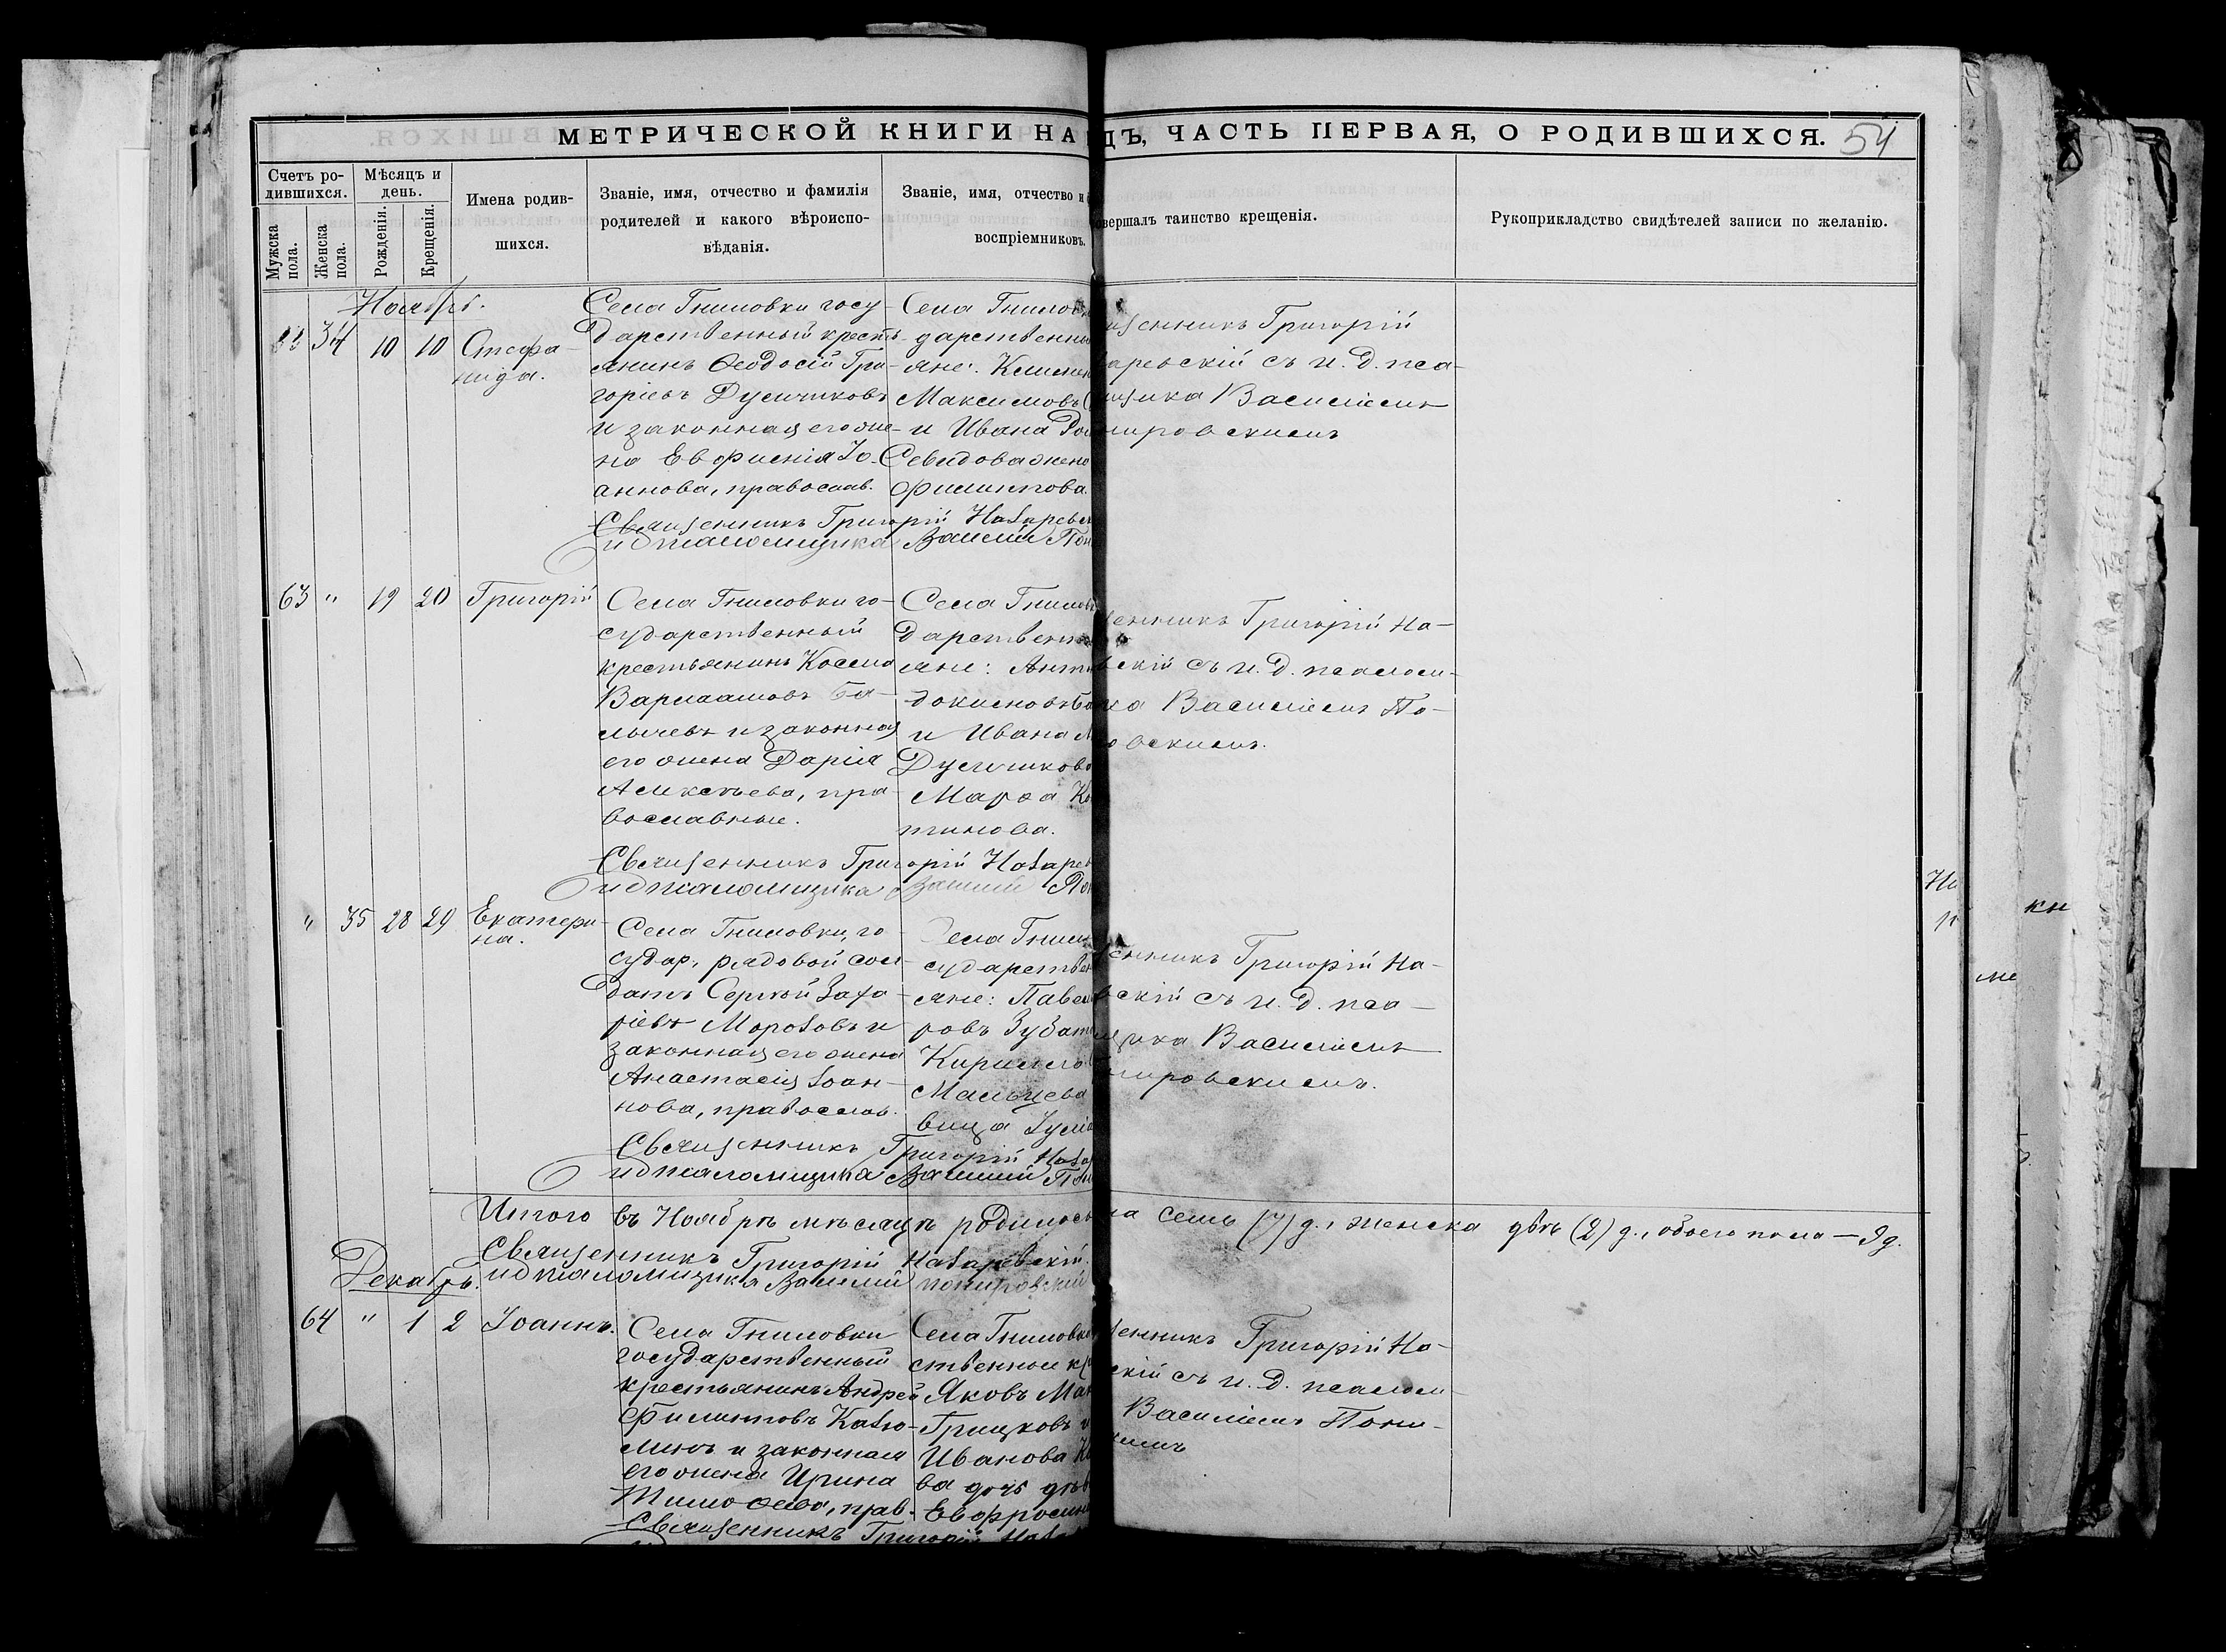 МЕТРИЧЕСКОЙ КНИГИ НА
ДЪ, ЧАСТЬ ПЕРВАЯ, О РОДИВШИХСЯ. 54
Счетъ ро-
дившихся.
Мужска
пола.
Женска
пола.
Мѣсяцъ и
день.
Рожденія.
Крещенія.
Имена родив-
шихся.
Званіе, имя, отчество и фамилія
родителей и какого вѣроиспо-
вѣданія.
Званіе, имя, отчество и
воспріемниковъ.
овершалъ таинство крещенія.
Рукоприкладство свидѣтелей записи по желанію.
Ноябрь.
34 10 10
Стефа-
нида.
Села Гниловки госу-
дарственный кресть-
янинъ Ѳеодосій Гри-
горіевъ Дусичковъ
и законная его же-
на Евфимія Іо-
аннова, православ.
Села Гнилов
дарственны
яне: Климен
Максимовъ
и Ивана
Севидова жена
Филиппова.
щенникъ Григорій
аревскій съ и. д. пса-
мщика Василіемъ
нировскимъ
Священникъ Григорій Назаревск
и д псаломщика Василій Пон
63 " 19 20
Григорій
Села Гниловки го-
сударственный
крестьянинъ Косма
Варлаамовъ Ба-
лычевъ и законная
его жена Дарія
Алексѣева, пра-
вославные.
Села Гнилов
дарственн
яне: Анти
докимовъ Ба
и Ивана М
Дусичкова
Марѳа Ко
тинова.
щенникъ Григорій На-
вскій съ и. д. псалом-
ка Василіемъ По-
овскимъ.
Священникъ Григорій Назарев
и д псаломщика Василій Пон
" 35 28 29
Екатери-
на.
Села Гниловки, го-
судар. рядовой сол-
датъ Сергѣй Заха-
ріевъ Морозовъ и
законная его жена
Анастасія Іоан-
нова, православ.
Села Гнилов
сударствен
яне: Павел
ровъ Зубат
Кирилло
Мальцева
вица Іулі
енникъ Григорій На-
вскій съ и. д. пса-
щика Василіемъ
нировскимъ.
Священникъ Григорій Наза
и д псаломщика Василій Пон
Итого въ Ноябрѣ мѣсяцѣ родилось
ка семь (7) д., женска двѣ (2) д., обоего пола — 9 д.
Священникъ Григорій Назаревскій.
и д псаломщика Василій Понировскій
Декабрь.
64 " 1 2
Іоаннъ.
Села Гниловки
государственный
крестьянинъ Андрей
Филипповъ Казю-
линъ и законная
его жена Ирина
Тимоѳеева, прав.
Села Гниловк
ственное кр
Яковъ Мак
Грицковъ и
Иванова К
ва дочь дѣв
Евфросин
щенникъ Григорій На-
скій съ и. д. псалом-
Василіемъ Пони-
кимъ
Священникъ Григорій Наза